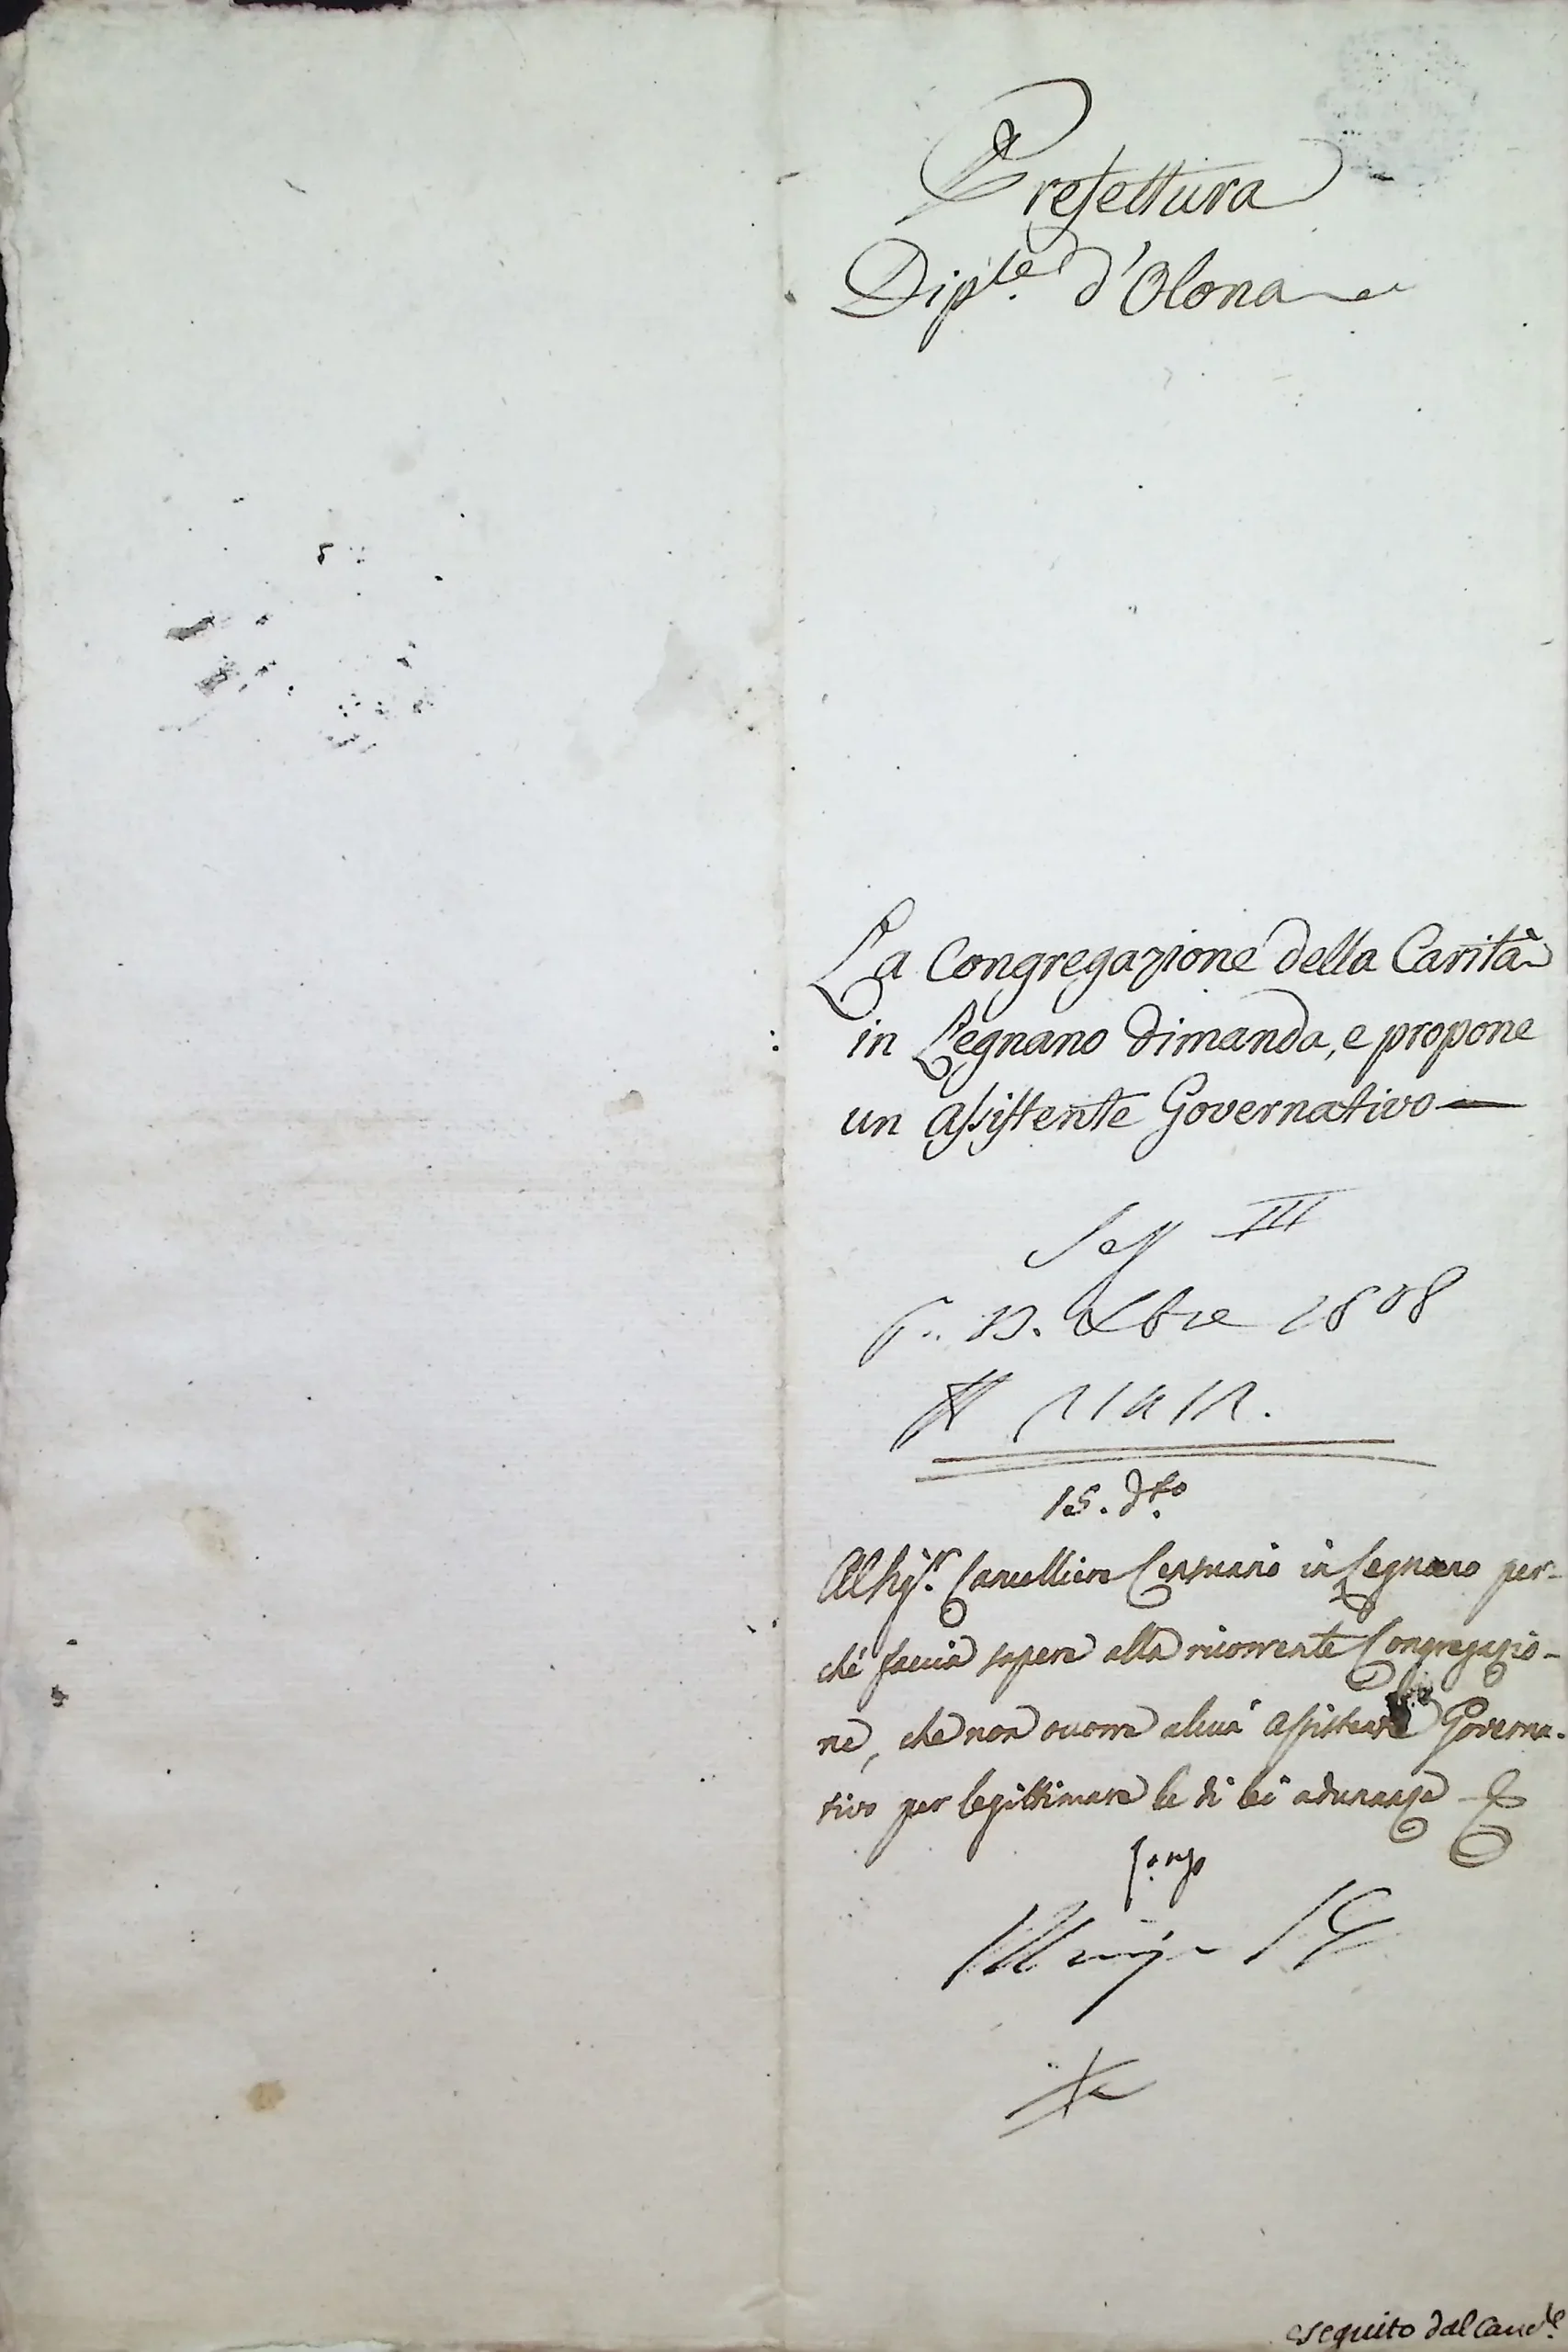 Prefettura
Dip.le d'Olona
La Congregazione della Carità
in Legnano dimanda, e propone
un assistente Governativo —
III
Xbre 1808
15. d.to
Al Sig.r Cancelliere Censuario in Legnano per-
chè faccia sapere alla ricorrente Congregazio-
ne, che non occorre alcun assistente Governa-
tivo per legittimare le di lei adunanze
eseguito dal Canc.re